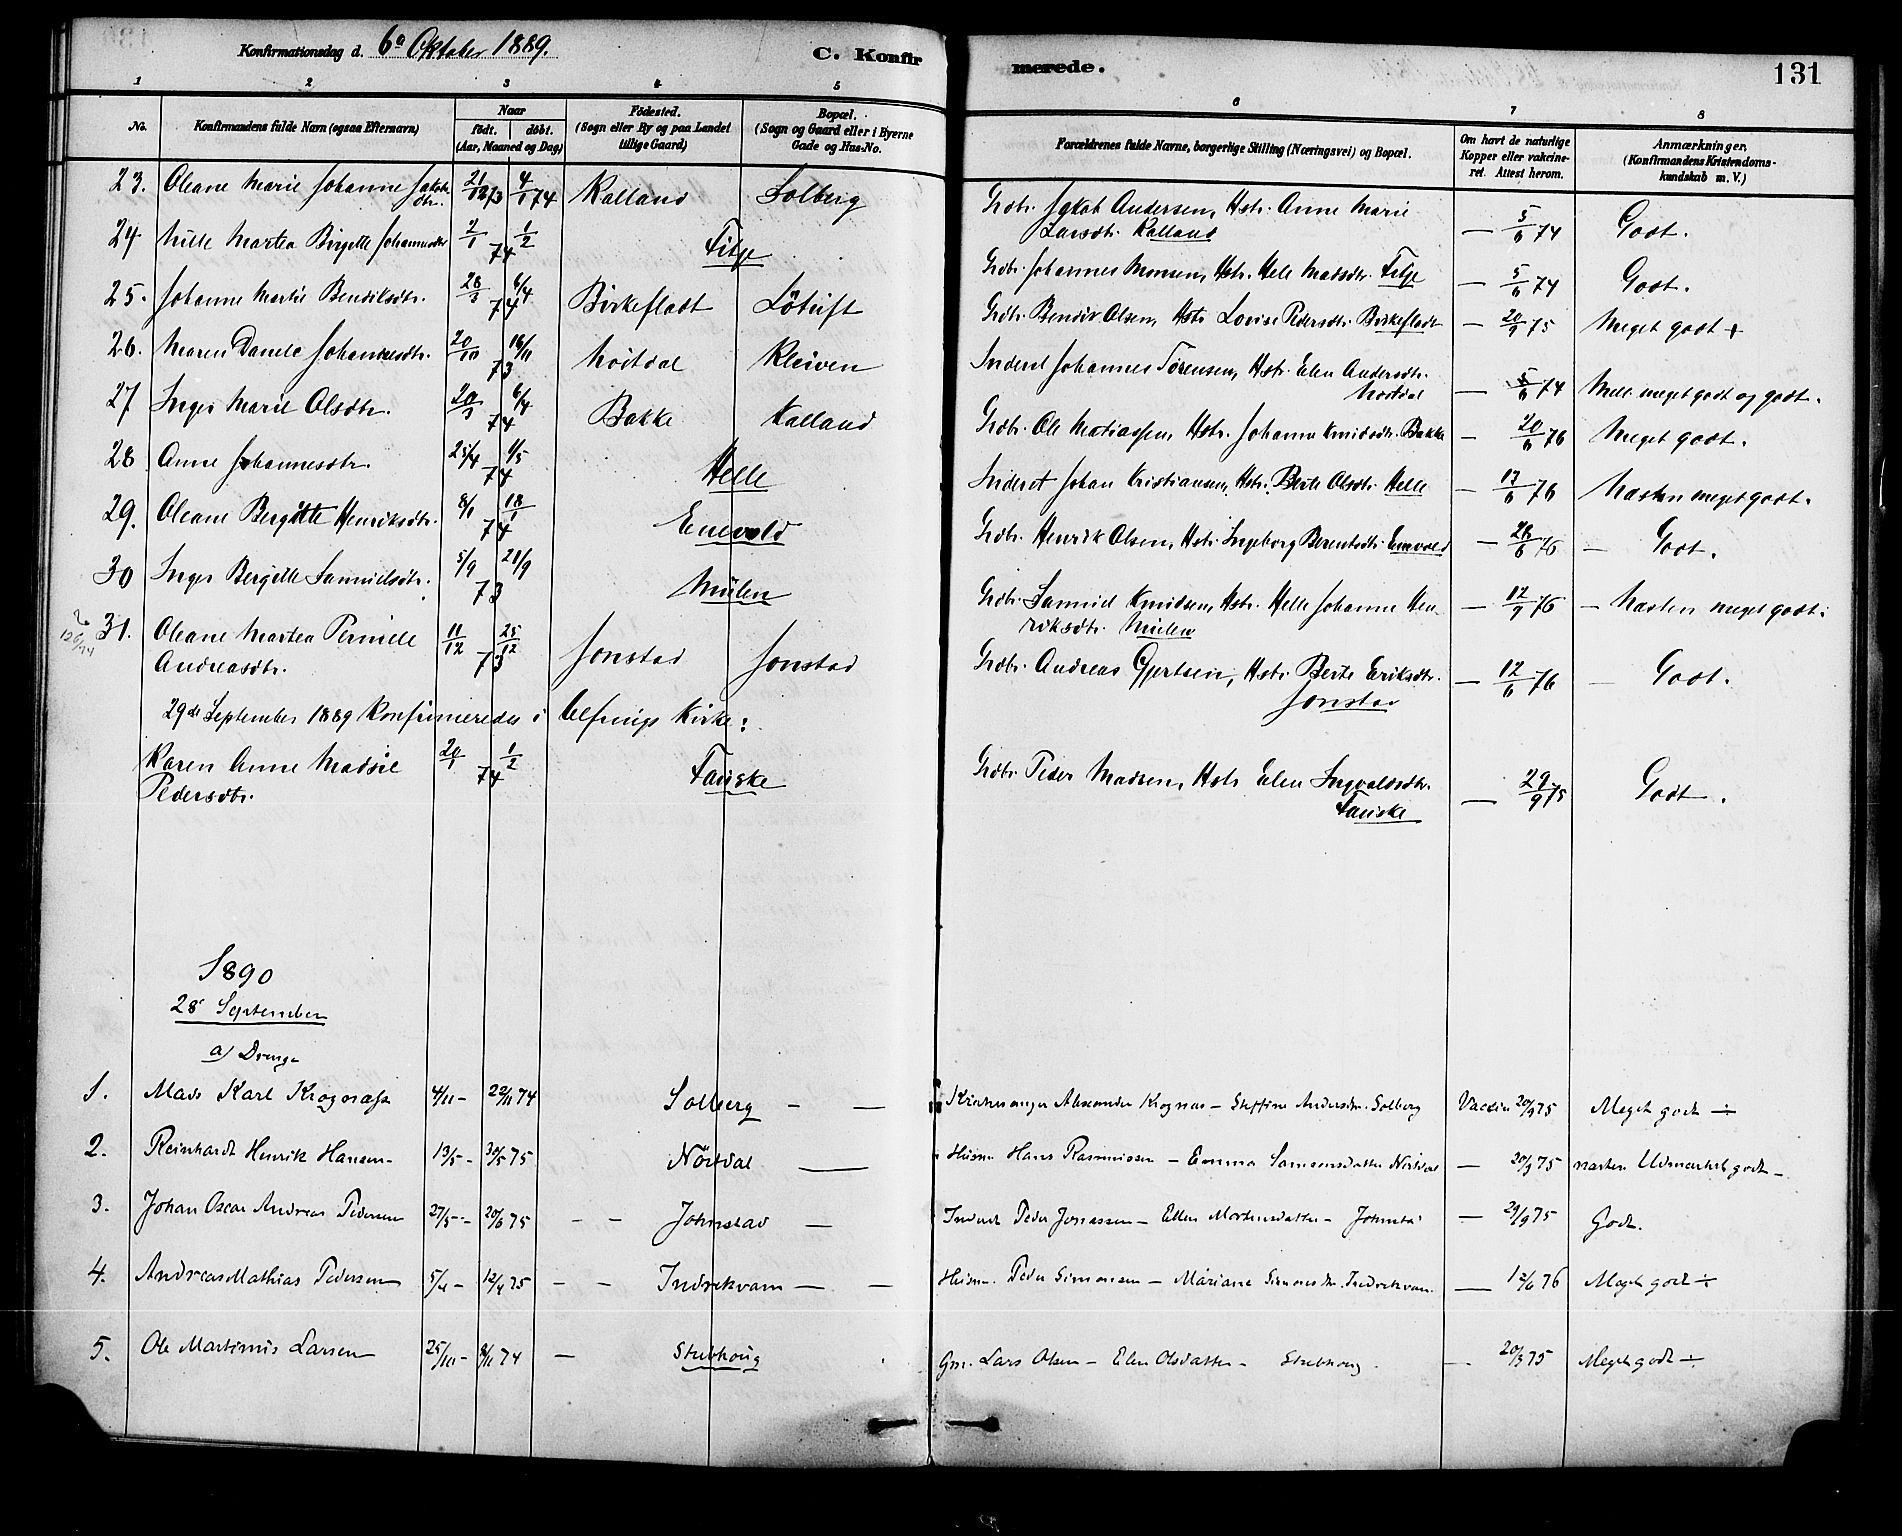 Konfirmationsdag d. 6a Oktober 1889.
C. Konfirmerede.
131
1 2 3 4 5 6 7 8
No.
Konfirmandens fulde Navn (ogsaa Efternavn)
Naar födt. döbt. (Aar, Maaned og Dag)
Födested. (Sogn eller By og paa Landet tillige Gaard)
Bopæl. (Sogn og Gaard eller i Byerne Gade og Hus-No.
Forældrenes fulde Navne, borgerlige Stilling (Næringsvei) og Bopæl.
Om havt de naturlige Kopper eller vakcineret. Attest herom.
Anmærkninger. (Konfirmandens Kristendomskundskab m. V.)
23. Oleane Marie Johanne Jakobsdtr. 21/12 73 4/1 74 Kalland Solberg Grdbr. Jakob Andersen, Hstr. Anne Marie Larsdtr. Kalland — 5/6 74 Godt.
24 Martea Birgitte Johannesdtr 2/1 1/2 74 Fitje Grdbr. Johannes Monsen, Hstr. Helle Madsdtr. Fitje — 5/6 74 Godt.
25. Johanne Martie Bendiksdtr. 28/3 6/4 74 Birkefladt Lötuft Grdbr. Bendix Olsen, Hstr. Lovise Pedersdtr. Birkefladt — 20/9 75 Meget godt +
26. Maren Danele Johannesdtr. 20/10 16/11 73 Nordal Kleiven Inderst Johannes Törensen, Hstr. Elen Andersdtr. — 5/6 74 Mell. meget godt og godt.
27 Inger Marie Olsdtr. 20/3 6/4 74 Bakke Kalland Grdbr. Ole Matiassen, Hstr. Johanna Knudsdtr. Bakke — 20/6 76 Meget godt.
28 Anne Johannesdtr. 25/4 1/5 74 Helle Inderst Johan Kristiansen, Hstr. Berte Olsdtr. Helle — 17/6 76 Næsten meget godt.
29. Oleane Bergitte Henriksdtr. 8/1 18/1 74 Enevold Grdbr. Henrik Olsen, Hstr. Ingeborg Berentsdtr. Enevold — 26/6 76 — Godt.
30 Inger Bergitte Samuelsdtr. 5/9 21/9 73 Mulen Grdbr. Samuel Knudsen, Hstr. Helle Johanne Henriksdtr. Mulen — 12/9 76 — Næsten meget godt.
31. Oleane Martea Pernille Andreasdtr. 11/12 25/12 73 Jonstad Jonstad Grdbr. Andreas Gjertsen, Hstr. Berte Eriksdtr. Jonstad — 12/6 76 — Godt.
29de September 1889 Konfirmeredes i Kirke:
Karen Anne Madsie Pedersdtr. 20/1 1/2 74 Fauske Grdbr. Peder Madsen, Hstr Elen Ingvaldsdtr. Fauske — 29/9 75 Godt.
1890
28 September
a) Drenge
1. Mads Karl Krognæss 4/11 - 22/11 74 Solberg — — Kirkesanger Alexander Krognæs – Steffine Andersdtr. Solberg Vaccin 20/9 75 Meget godt ÷
2. Reinhardt Henrik Hansen 13/5 - 30/5 75 Nördal — Husm. Hans Rasmussen – Emma Samsonsdatter Nördal — 20/9 75 næsten Udmærket godt –
3. Johan Oscar Andreas Pedersen 27/5 - 20/6 75 - - Johnstad — Inderst Peder Jonassen – Ellen Mortensdatter – Johnsta — 29/9 75 Godt.
4. Andreas Mathias Pedersen 5/4 - 12/4 75 — — Indrekvam — — Husm. Peder Simonsen – Mariane Simonsdtr. Indrekvam. — 12/6 76 Meget godt ÷
5. Ole Martinus Larsen 25/10 - 8/11 74 — Stubhoug Gm. Lars Olsen – Elen Olsdatter – Stubhoug — 20/9 75 Meget godt ÷